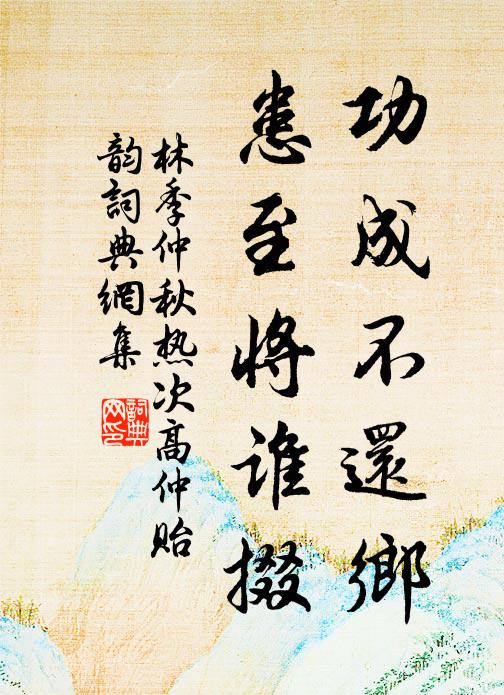 功成不還鄉
患至將誰掇
林季仲秋热次高仲貽
韵詞典網集
詞典網印